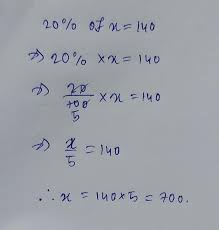 20% of x = 140
⇒ 20% × x = 140
⇒ 20/100 × x = 140
5
⇒ x/5 = 140
∴ x = 140×5 = 700.